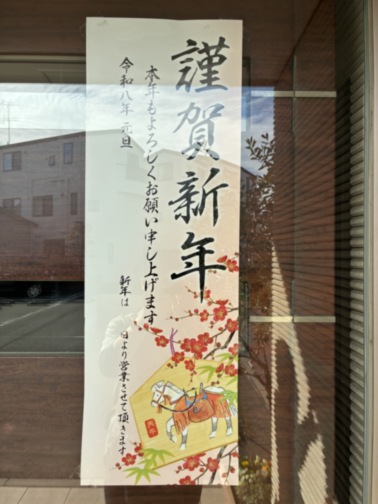 謹賀新年
本年もよろしくお願い申し上げます
令和八年 元旦
新年は 日より営業させて頂きます